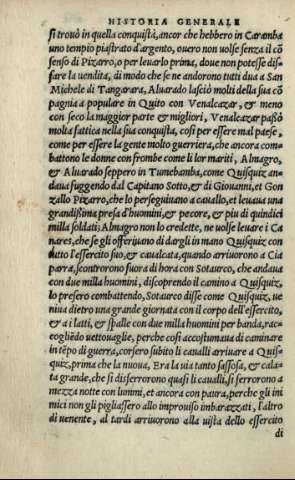 HISTORIA GENERALE
si trouò in quella conquista, ancor che hebbero in Caramba
uno tempio piastrato d'argento, ouero non uolse senza il cō
senso di Pizarro, o per leuarlo prima, doue non potesse disfare
la uendita, di modo che se ne andorono tutti dua a San
Michele di Tangarara, Aluarado lasciò molti della sua cō
pagnia a populare in Quito con Venalcazar, & meno
con seco la maggior parte & migliori, Venalcazar passò
molta fattica nella sua conquista, cosi per essere mal paese,
come per essere la gente molto guerriera, che ancora combattono
le donne con frombe come li lor mariti, Almagro,
& Aluarado seppero in Tumebamba, come Quisquiz andaua
fuggendo dal Capitano Sotto, & di Giouanni, et Gonzallo
Pizarro, che lo perseguiuano a cauallo, et leuaua una
grandissima presa d'huomini, & pecore, & piu di quindici
milla soldati; Almagro non lo credette, ne uolse leuare i Ca
nares, che se gli offeriuano di dargli in mano Quisquiz con
tutto l'essercito suo, & caualcata, quando arriuorono a Cia
parra, scontrorono fuora di hora con Sotaurco, che andaua
con due milla huomini, discoprendo il camino a Quisquiz,
lo presero combattendo, Sotaurco disse come Quisquiz, ue
niua dietro una grande giornata con il corpo dell'essercito,
& a i latti, & spalle con due milla huomini per banda, rac-
cogliēdo uettouaglie, perche cosi accostumaua di caminare
in tēpo di guerra, corsero subito li caualli arriuare a Quis-
quiz, prima che la nuoua, Era la uia tanto sassosa, & cala-
ta grande, che si disferrorono quasi li caualli, si ferrorono a
mezza notte con lumini, et ancora con paura, perche gli ini
mici non gli pigliassero allo improuiso imbarazzati, l'altro
di uenente, al tardi arriuorono alla uista dello essercito
di